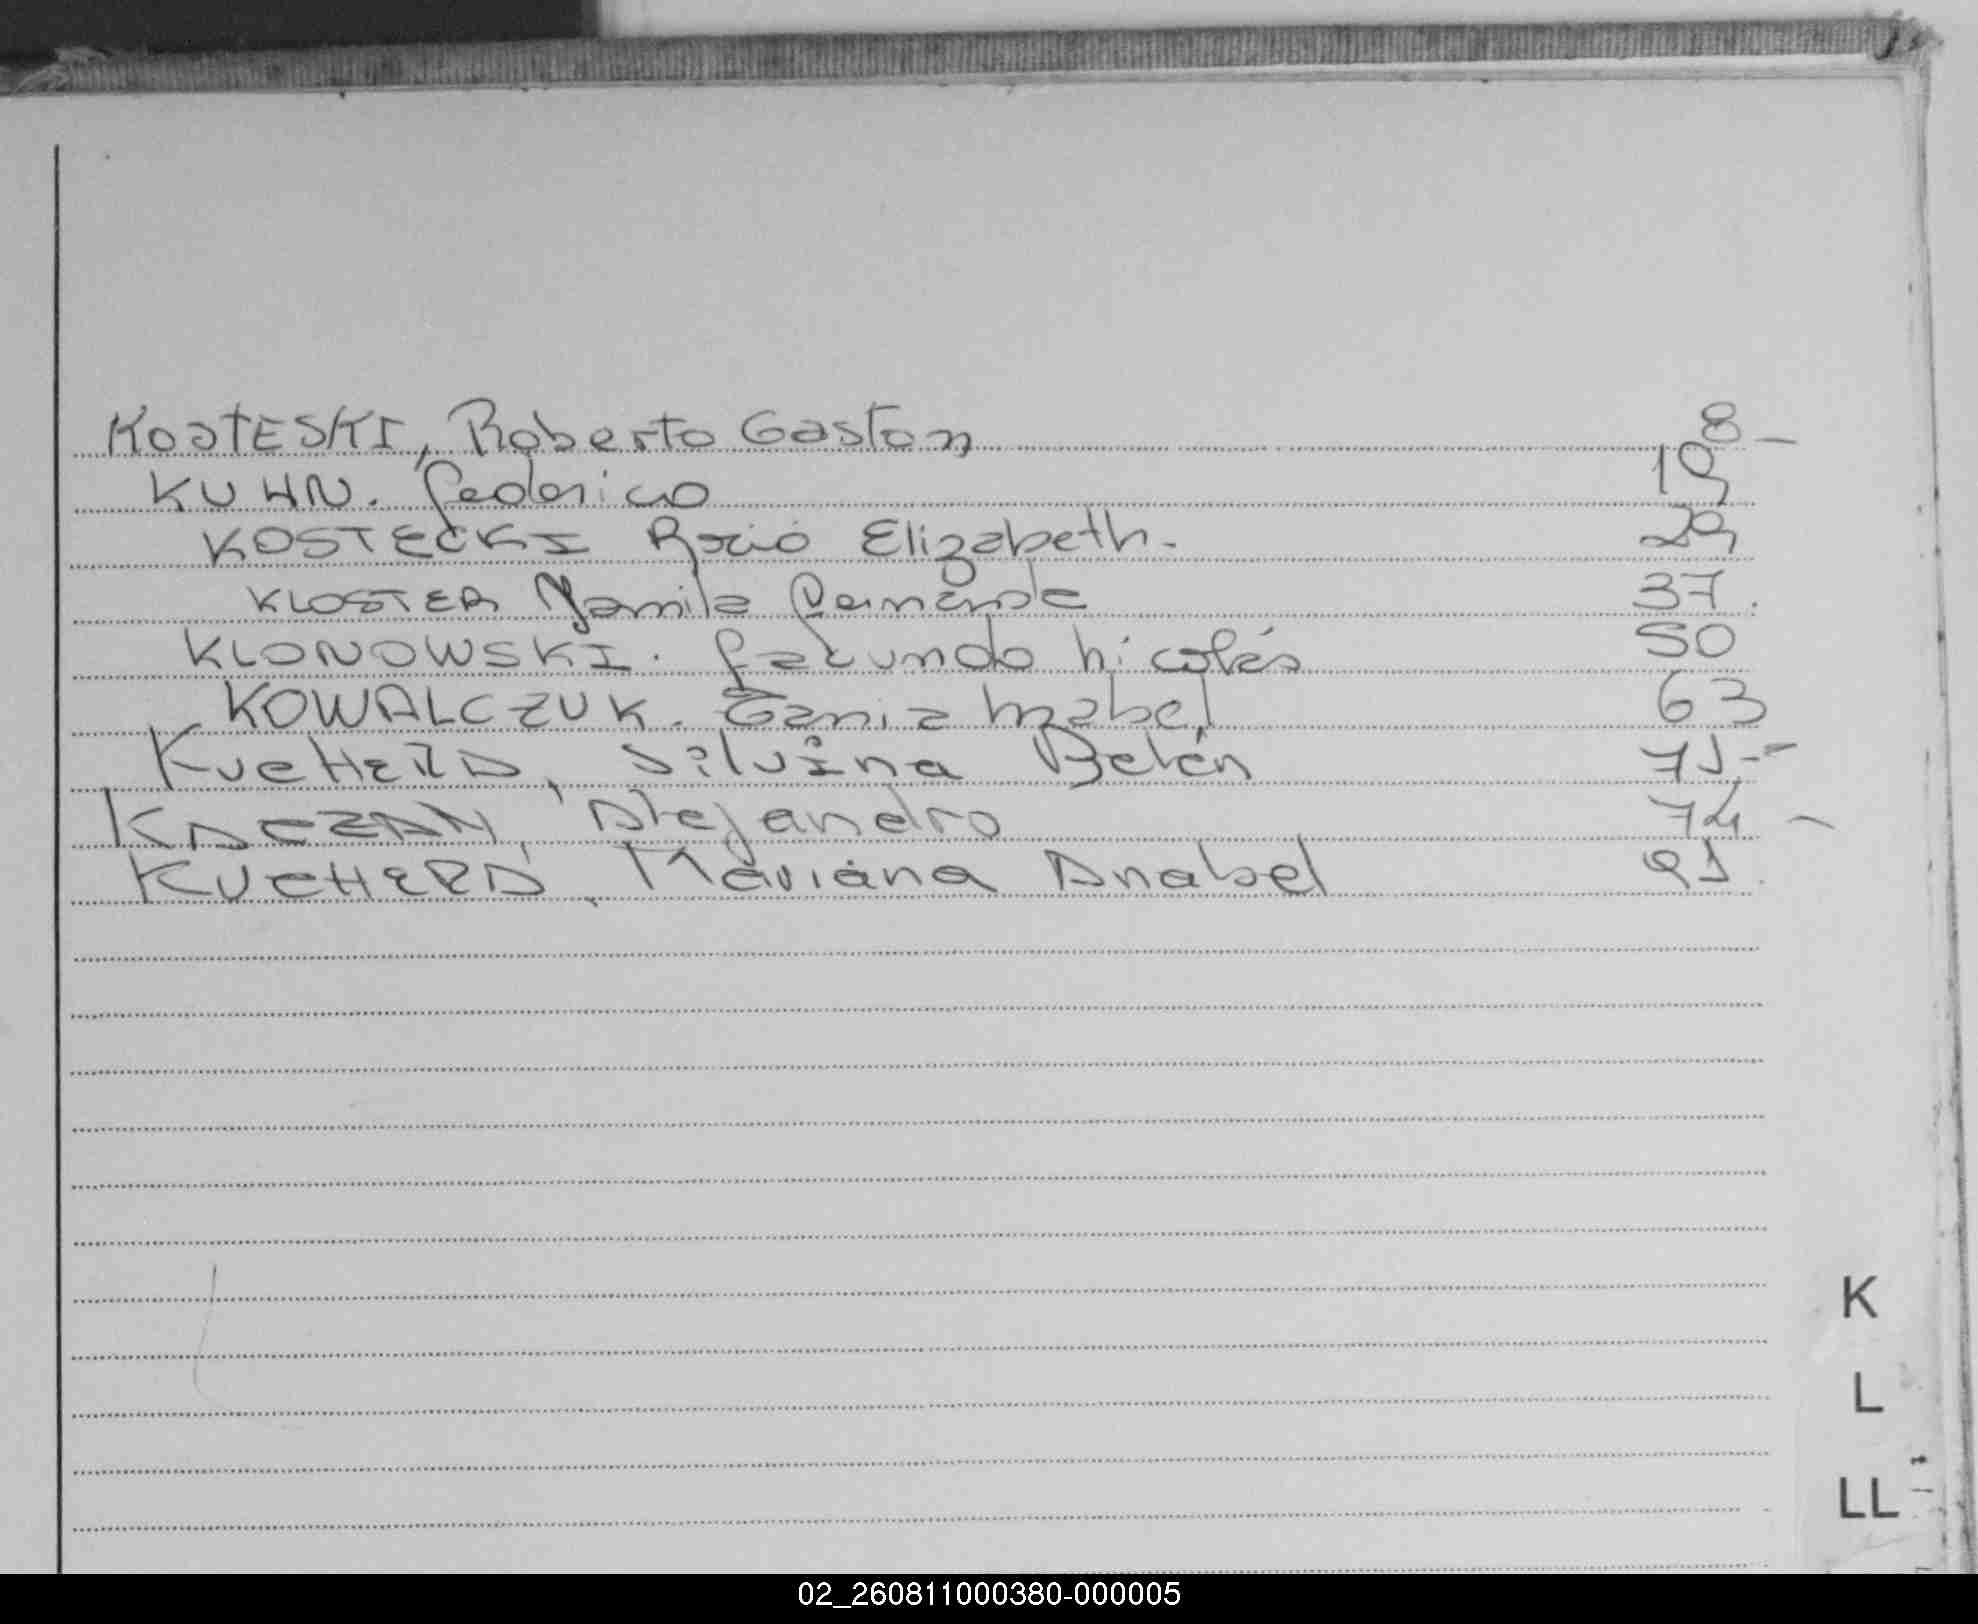 KOSTESKI, Roberto Gaston 8-
KUHN. Federico 19
KOSTECKI Rocio Elizabeth. 29
KLOSTER Yamila Fernanda 37.
KLONOWSKI. Facundo Nicolás 50
KOWALCZUK. Tania Mabel 63
KUCHERA, Silvina Belén 71-
KACZAN, Alejandro 74 -
KUCHERA, Mariana Anabel 91.
K
L
LL
02_260811000380-000005